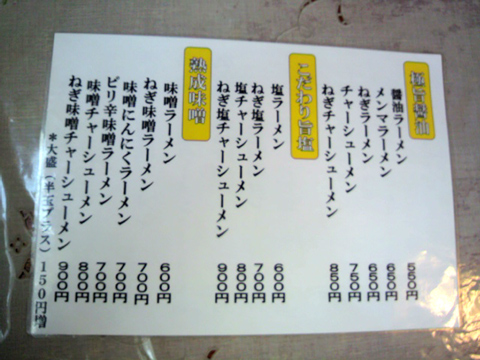 極旨醤油
醤油ラーメン 550円
メンマラーメン 650円
ねぎラーメン 650円
チャーシューメン 750円
ねぎチャーシューメン 850円
こだわり旨塩
塩ラーメン 600円
ねぎ塩ラーメン 700円
塩チャーシューメン 800円
ねぎ塩チャーシューメン 900円
熟成味噌
味噌ラーメン 600円
ねぎ味噌ラーメン 700円
味噌にんにくラーメン 700円
ピリ辛味噌ラーメン 700円
味噌チャーシューメン 800円
ねぎ味噌チャーシューメン 900円
*大盛(半玉プラス)150円増